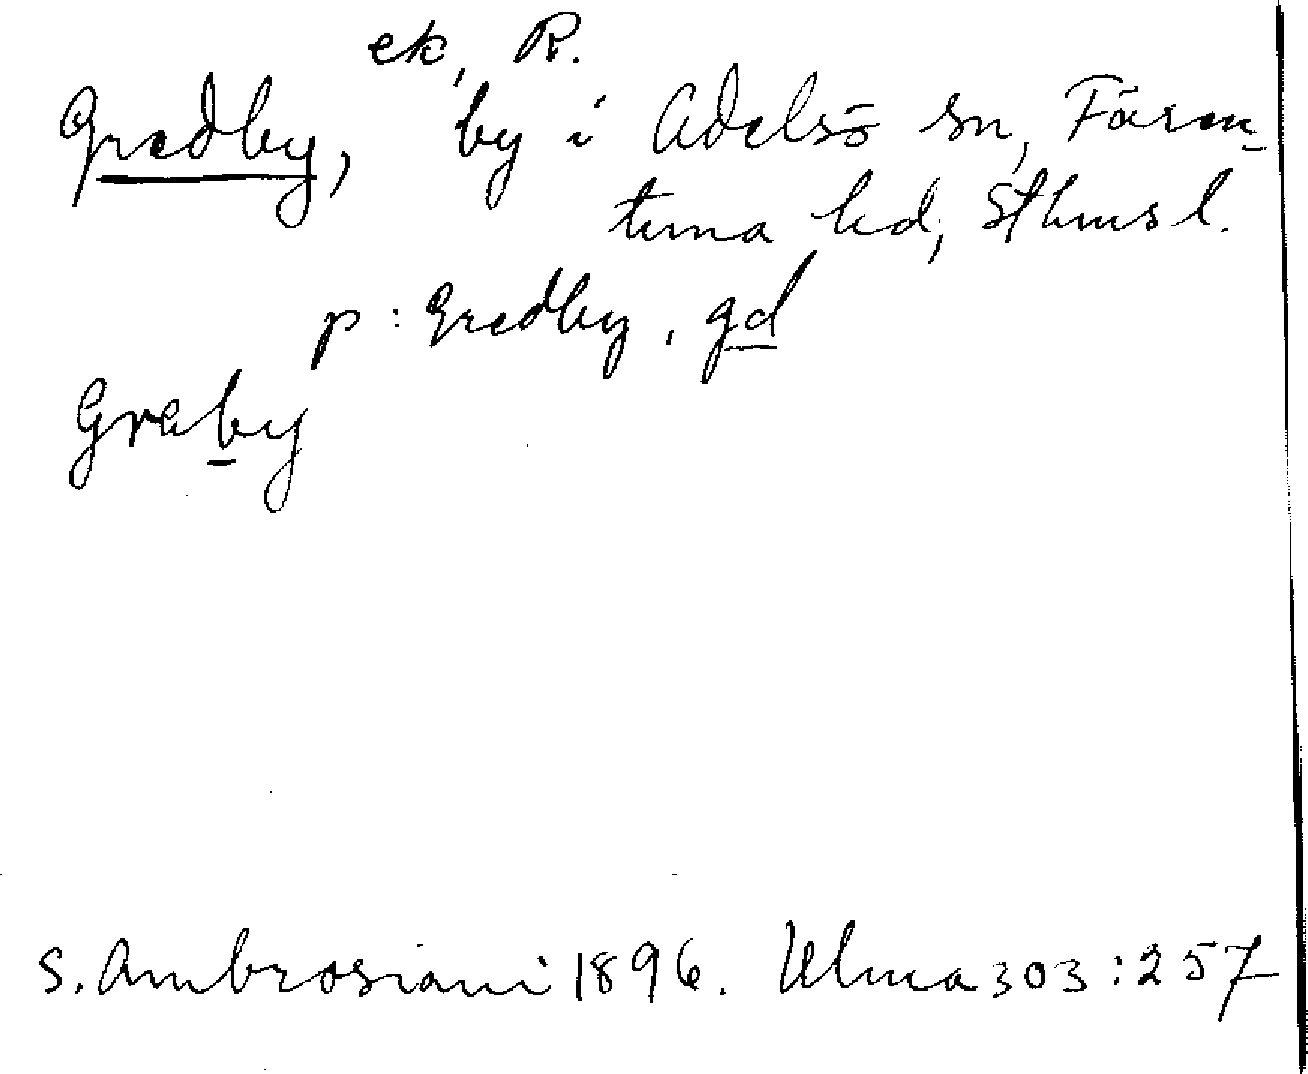 ek, R.
Gredby, by i Adelsö sn, Fären-
tuna hd, Sthms l.
p: Gredby, gd
Greby
S. Ambrosiani 1896. Ulma 303:257